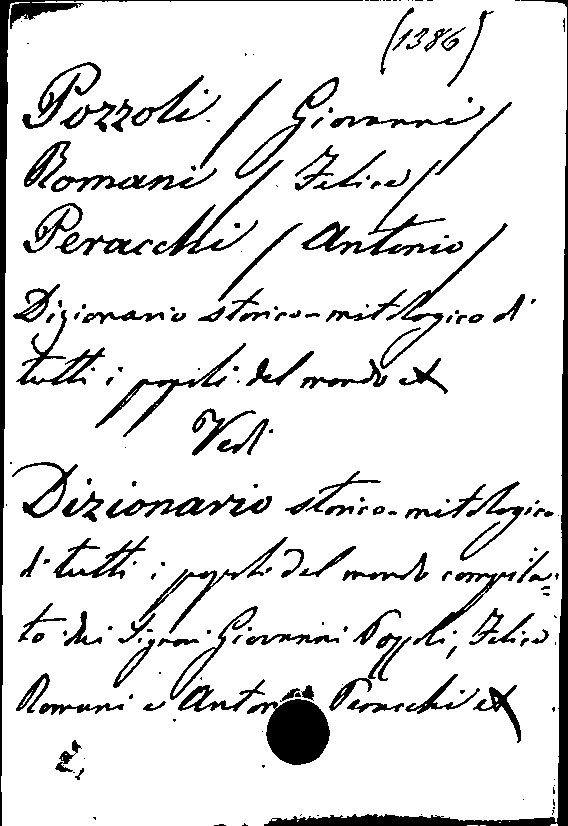 (1386)
Pozzoli / Giovanni /
Romani / Felice /
Peracchi / Antonio /
Dizionario storico-mitologico di
tutti i popoli del mondo etc
Vedi
Dizionario storico-mitologico
di tutti i popoli del mondo compila=
to dai Signori Giovanni Pozzoli, Felice
Romani e Antonio Peracchi etc